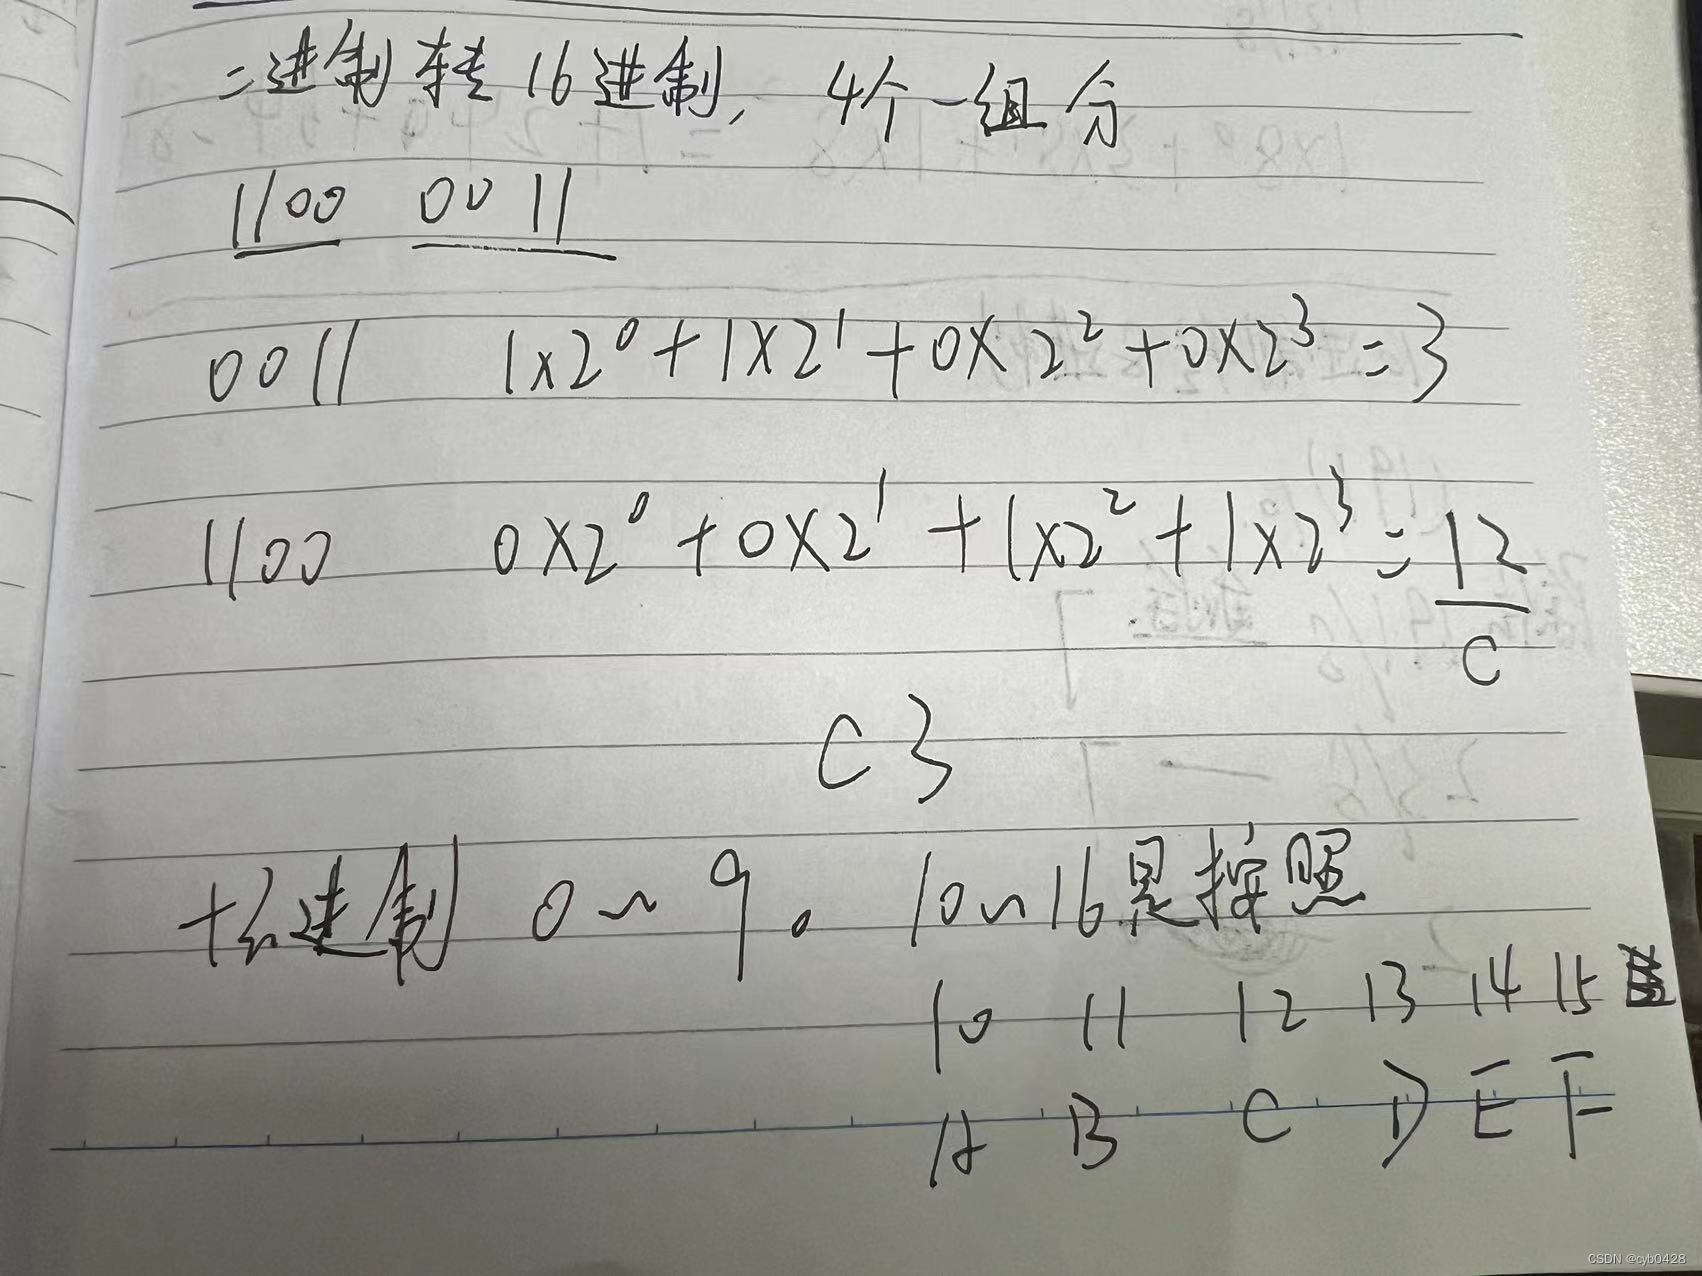 二进制转16进制, 4个一组分
1100 0011
0011 1×2⁰+1×2¹+0×2²+0×2³=3
1100 0×2⁰+0×2¹+1×2²+1×2³=12
C
C3
十六进制 0~9。 10~16是按照
10 11 12 13 14 15
A B C D E F
CSDN @cyb0428